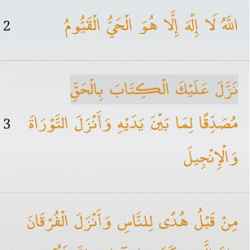 اللَّهُ لَا إِلَٰهَ إِلَّا هُوَ الْحَيُّ الْقَيُّومُ 2
نَزَّلَ عَلَيْكَ الْكِتَابَ بِالْحَقِّ
مُصَدِّقًا لِمَا بَيْنَ يَدَيْهِ وَأَنْزَلَ التَّوْرَاةَ 3
وَالْإِنْجِيلَ
مِنْ قَبْلُ هُدًى لِلنَّاسِ وَأَنْزَلَ الْفُرْقَانَ